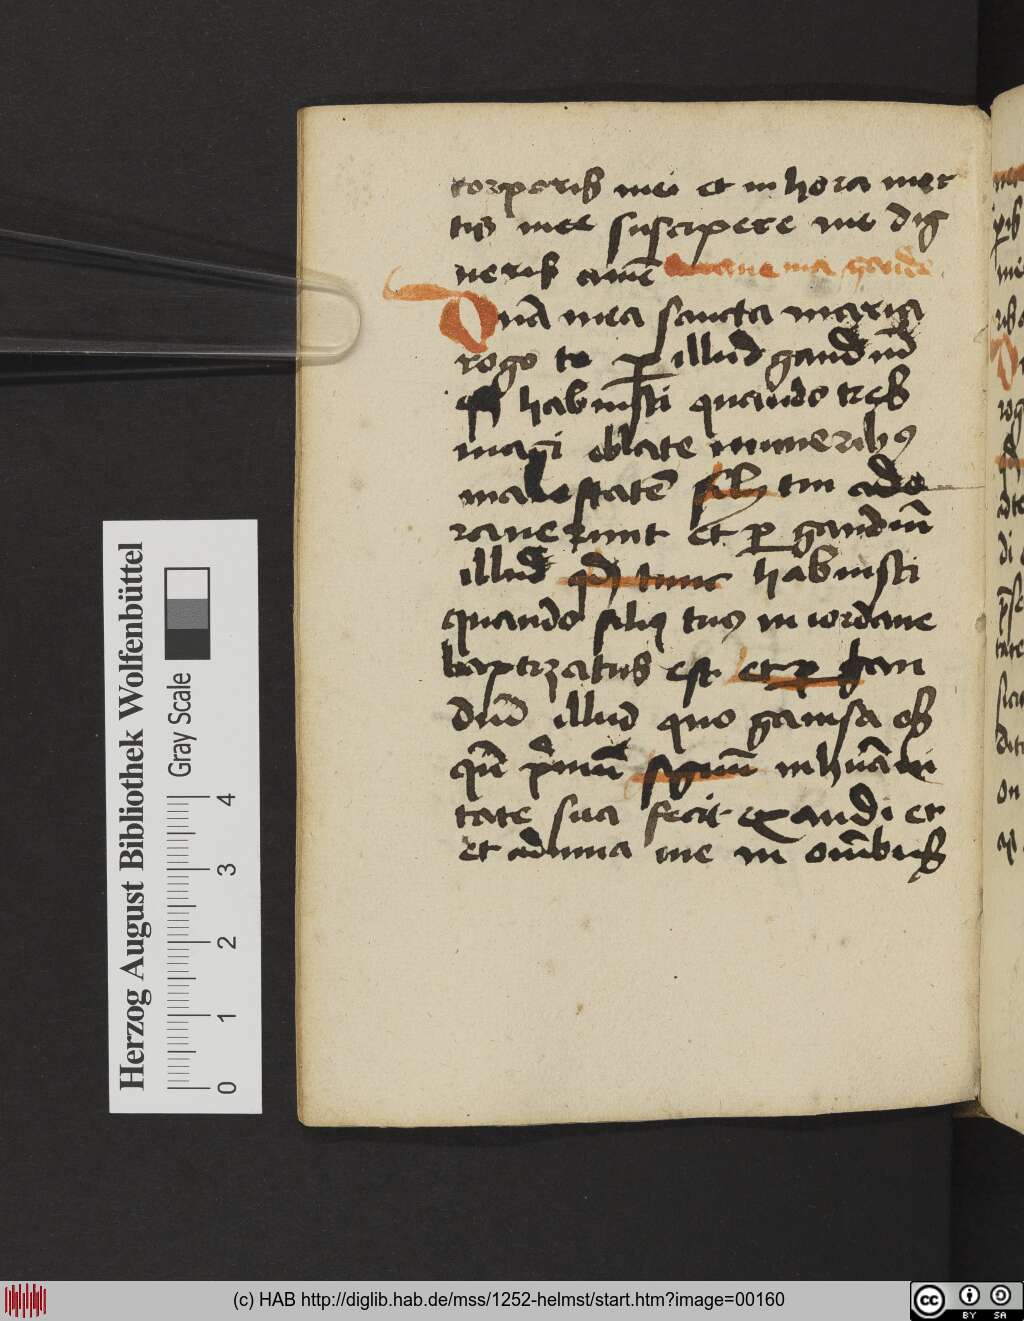 corporis mei et in hora mor
tis mee suscipere me dig
neris amē gaude
Dnā mea sancta maria
rogo te ꝑ illud gaudiū
habuisti quando tres
magi oblate muneribꝰ
maiestatē filij tui ado
rauerunt et ꝑ gaudiū
illud qd tunc habuisti
quando filiꝰ tuꝰ in iordane
baptizatus est et ꝑ gau
diū illud quo gauisa es
qn̄ pͥmū signū in huāni
tate sua fecit exaudi et
et adiuua me in omībus
Herzog August Bibliothek Wolfenbüttel
Gray Scale
0 1 2 3 4
(c) HAB http://diglib.hab.de/mss/1252-helmst/start.htm?image=00160
cc BY SA